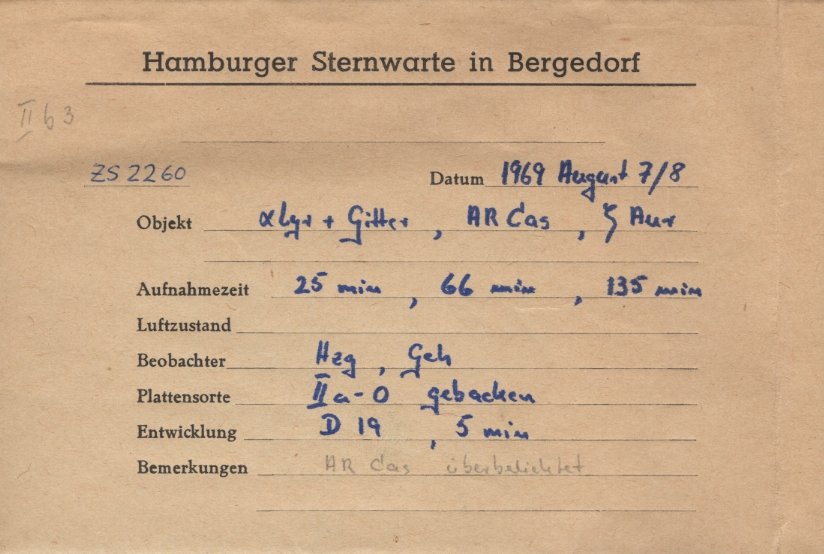 Hamburger Sternwarte in Bergedorf
II b 3
ZS 2260 Datum 1969 August 7/8
Objekt α Lyr + Gitter, AR Cas, ζ Aur
Aufnahmezeit 25 min, 66 min, 135 min
Luftzustand
Beobachter Hzg, Geh
Plattensorte IIa-O gebacken
Entwicklung D 19, 5 min
Bemerkungen AR Cas überbelichtet